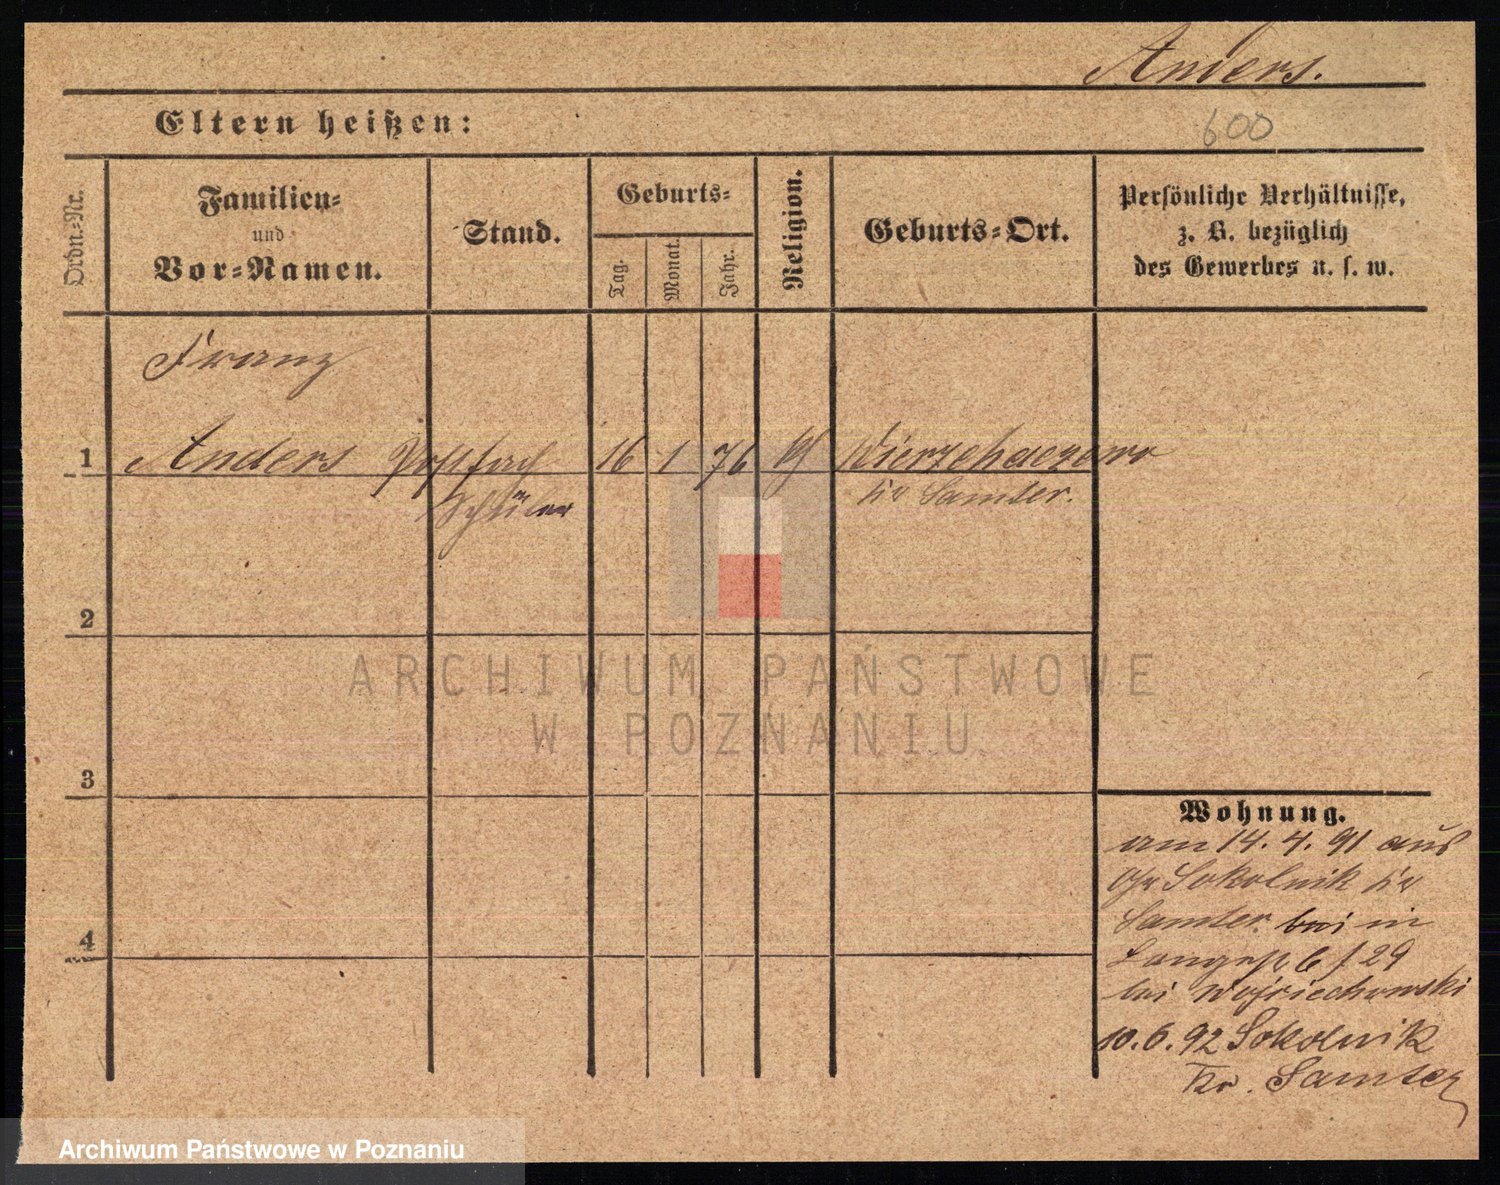 Anders.
Eltern heißen:
600
Ordn.-Nr.
Familien-
und
Vor-Namen.
Stand.
Geburts-
Tag.
Monat.
Jahr.
Religion.
Geburts-Ort.
Persönliche Verhältnisse,
z. B. bezüglich
des Gewerbes u. s. w.
Franz
1 Anders Postfach 16 1 76 Wierzchaczewo
Schüler Kr Samter.
2
ARCHIWUM PAŃSTWOWE
W POZNANIU
3
Wohnung.
am 14. 4. 91 aus
Sokolnik Kr
Samter. bei in
4
Langestr 6 / 29
bei Wojciechowski
10. 6. 92 Sokolnik
Kr. Samter
Archiwum Państwowe w Poznaniu